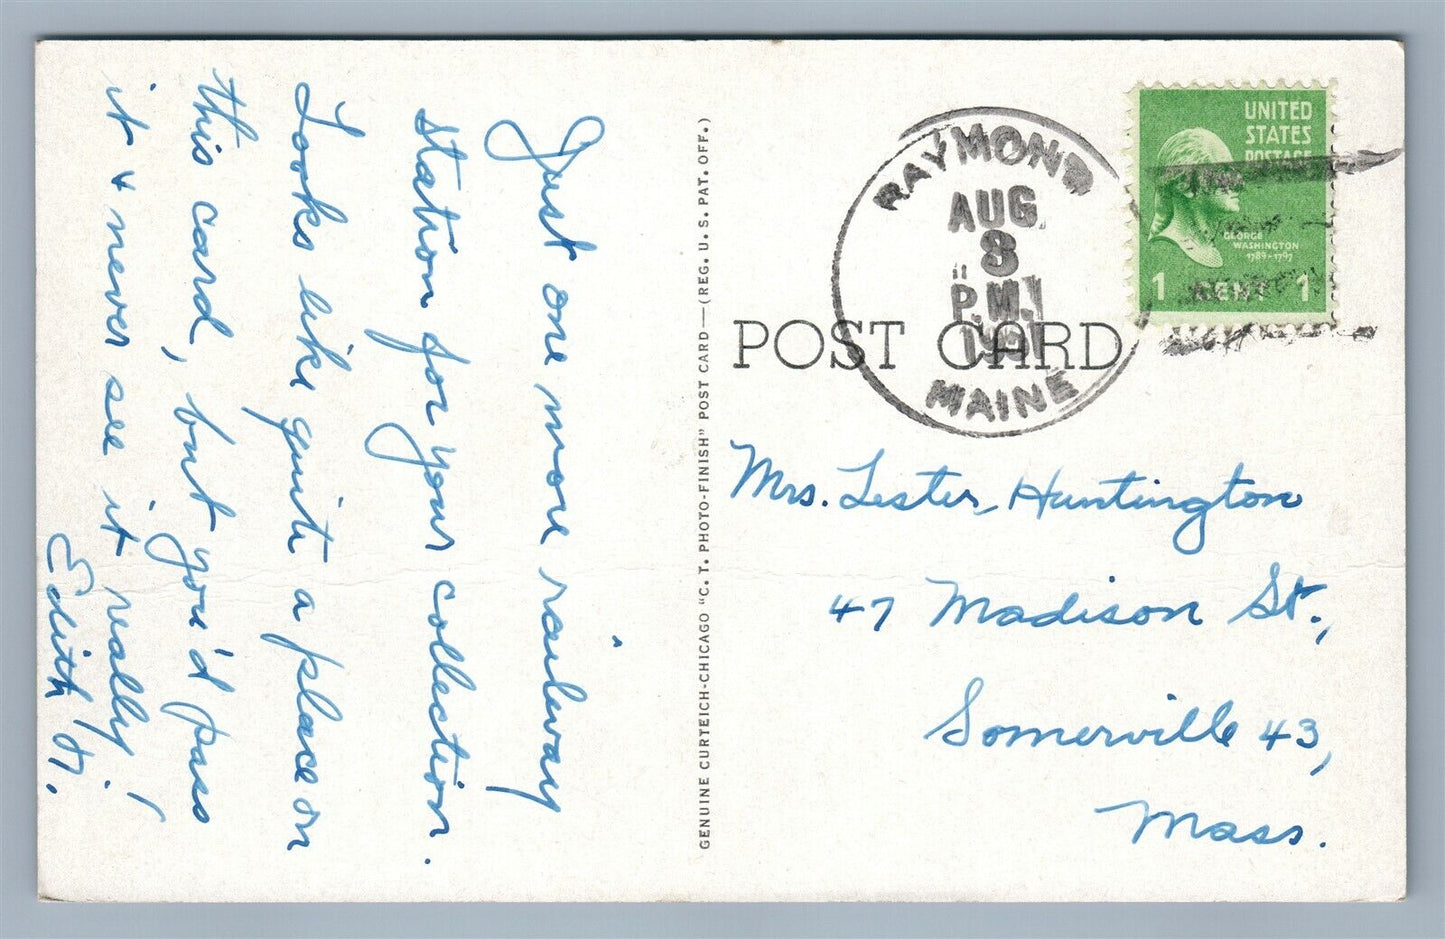 Just one more railway
station for your collection.
Looks like quite a place on
this card, but you'd pass
it & never see it really!
Edith
GENUINE CURTEICH-CHICAGO "C. T. PHOTO-FINISH" POST CARD—(REG. U. S. PAT. OFF.)
RAYMOND
AUG
8
P.M.
MAINE
UNITED
STATES
POSTAGE
GEORGE
WASHINGTON
1789-1797
1 CENT 1
POST CARD
Mrs. Lester Huntington
47 Madison St.,
Somerville 43,
Mass.